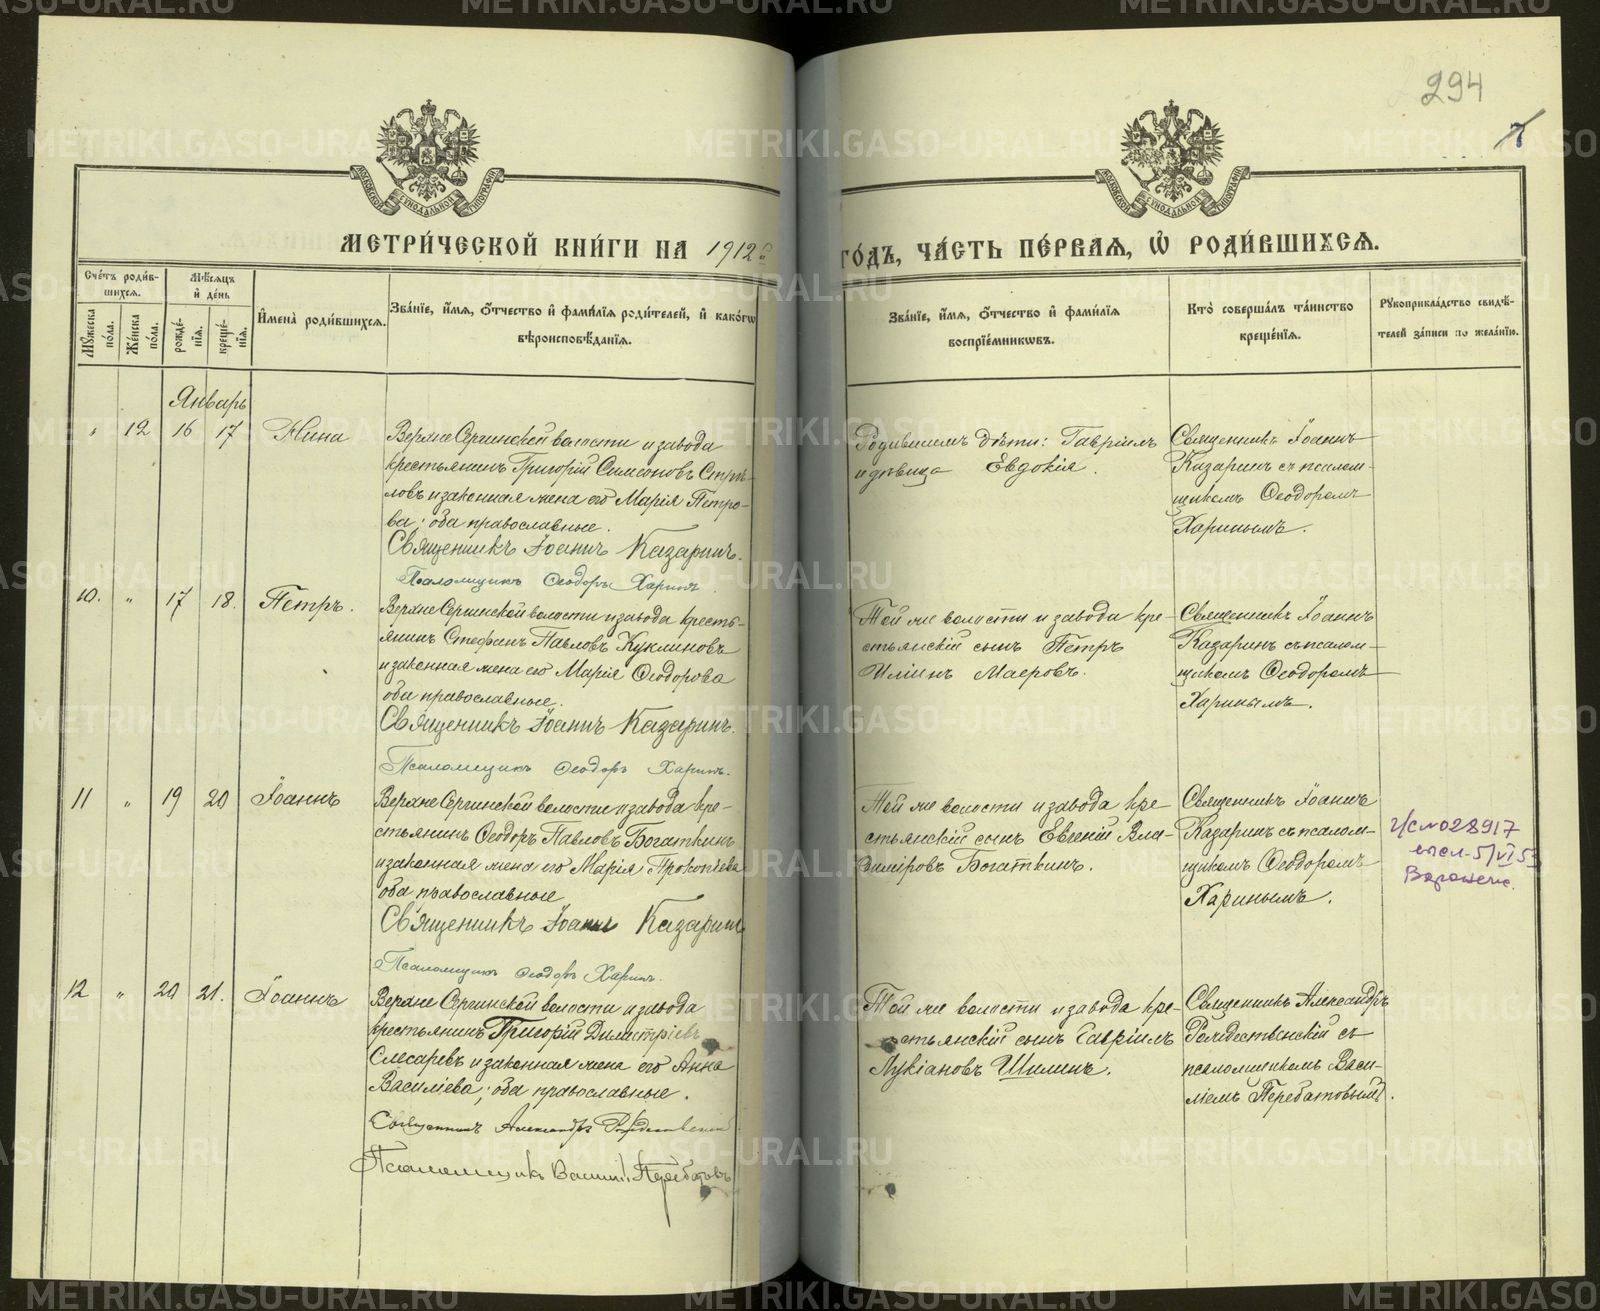 294
7
МЕТРИ́ЧЕСКОЙ КНИ́ГИ НА 1912й
ГО́ДЪ, ЧА́СТЬ ПЕ́РВАѦ, Ѽ РОДИ́ВШИХСѦ.
Сче́тъ роди́в-
шихсѧ.
Мѣ́сѧцъ
и҆ де́нь
Мꙋ́жеска по́ла.
Же́нска по́ла.
рожде́-
нїѧ.
креще́-
нїѧ.
И҆мена̀ роди́вшихсѧ.
Зва́нїе, и҆́мѧ, ѻ҆́тчество и҆ фами́лїѧ роди́телей, и҆ како́гѡ
вѣроисповѣ́данїѧ.
Зва́нїе, и҆́мѧ, ѻ҆́тчество и҆ фами́лїѧ
воспрїе́мникѡвъ.
Кто̀ соверша́лъ та́инство
креще́нїѧ.
Рꙋкоприкла́дство свидѣ́-
телей за́писи по жела́нїю.
Январь
" 12 16 17 Нина
Верхне Сергинской волости и завода
крестьянинъ Григорій Симеоновъ Стрѣ-
ловъ и законная жена его Марія Петро-
ва; оба православные.
Священникъ Іоаннъ Казаринъ.
Псаломщикъ Ѳеодоръ Харинъ.
Родившемъ дѣти: Гавріилъ
и дѣвица Евдокія.
Священникъ Іоаннъ
Казаринъ съ псалом-
щикомъ Ѳеодоромъ
Харинымъ.
10. " 17 18. Петръ.
Верхне Сергинской волости и завода кресть-
янинъ Стефанъ Павловъ Куклиновъ
и законная жена его Марія Ѳеодорова
оба православные.
Священникъ Іоаннъ Казаринъ.
Псаломщикъ Ѳеодоръ Харинъ.
Той же волости и завода кре-
стьянскій сынъ Петръ
Иліинъ Маеровъ.
Священникъ Іоаннъ
Казаринъ съ псалом-
щикомъ Ѳеодоромъ
Харинымъ.
11 " 19 20 Іоаннъ
Верхне Сергинской волости и завода кре-
стьянинъ Ѳеодоръ Павловъ Богаткинъ
и законная жена его Марія Прокопьева
оба православные
Священникъ Іоаннъ Казаринъ
Псаломщикъ Ѳеодоръ Харинъ.
Той же волости и завода кре-
стьянскій сынъ Евгеній Вла-
диміровъ Богаткинъ.
Священникъ Іоаннъ
Казаринъ съ псалом-
щикомъ Ѳеодоромъ
Харинымъ.
028917
5/VI 53
12 " 20 21. Іоаннъ
Верхне Сергинской волости и завода
крестьянинъ Григорій Димитріевъ
Слесаревъ и законная жена его Анна
Василіева; оба православные.
Священникъ Александръ Рождественскій
Псаломщикъ Василій Перебатовъ
Той же волости и завода кре-
стьянскій сынъ Гавріилъ
Лукіановъ Шилинъ.
Священникъ Александръ
Рождественскій съ
псаломщикомъ Васи-
ліемъ Перебатовымъ.